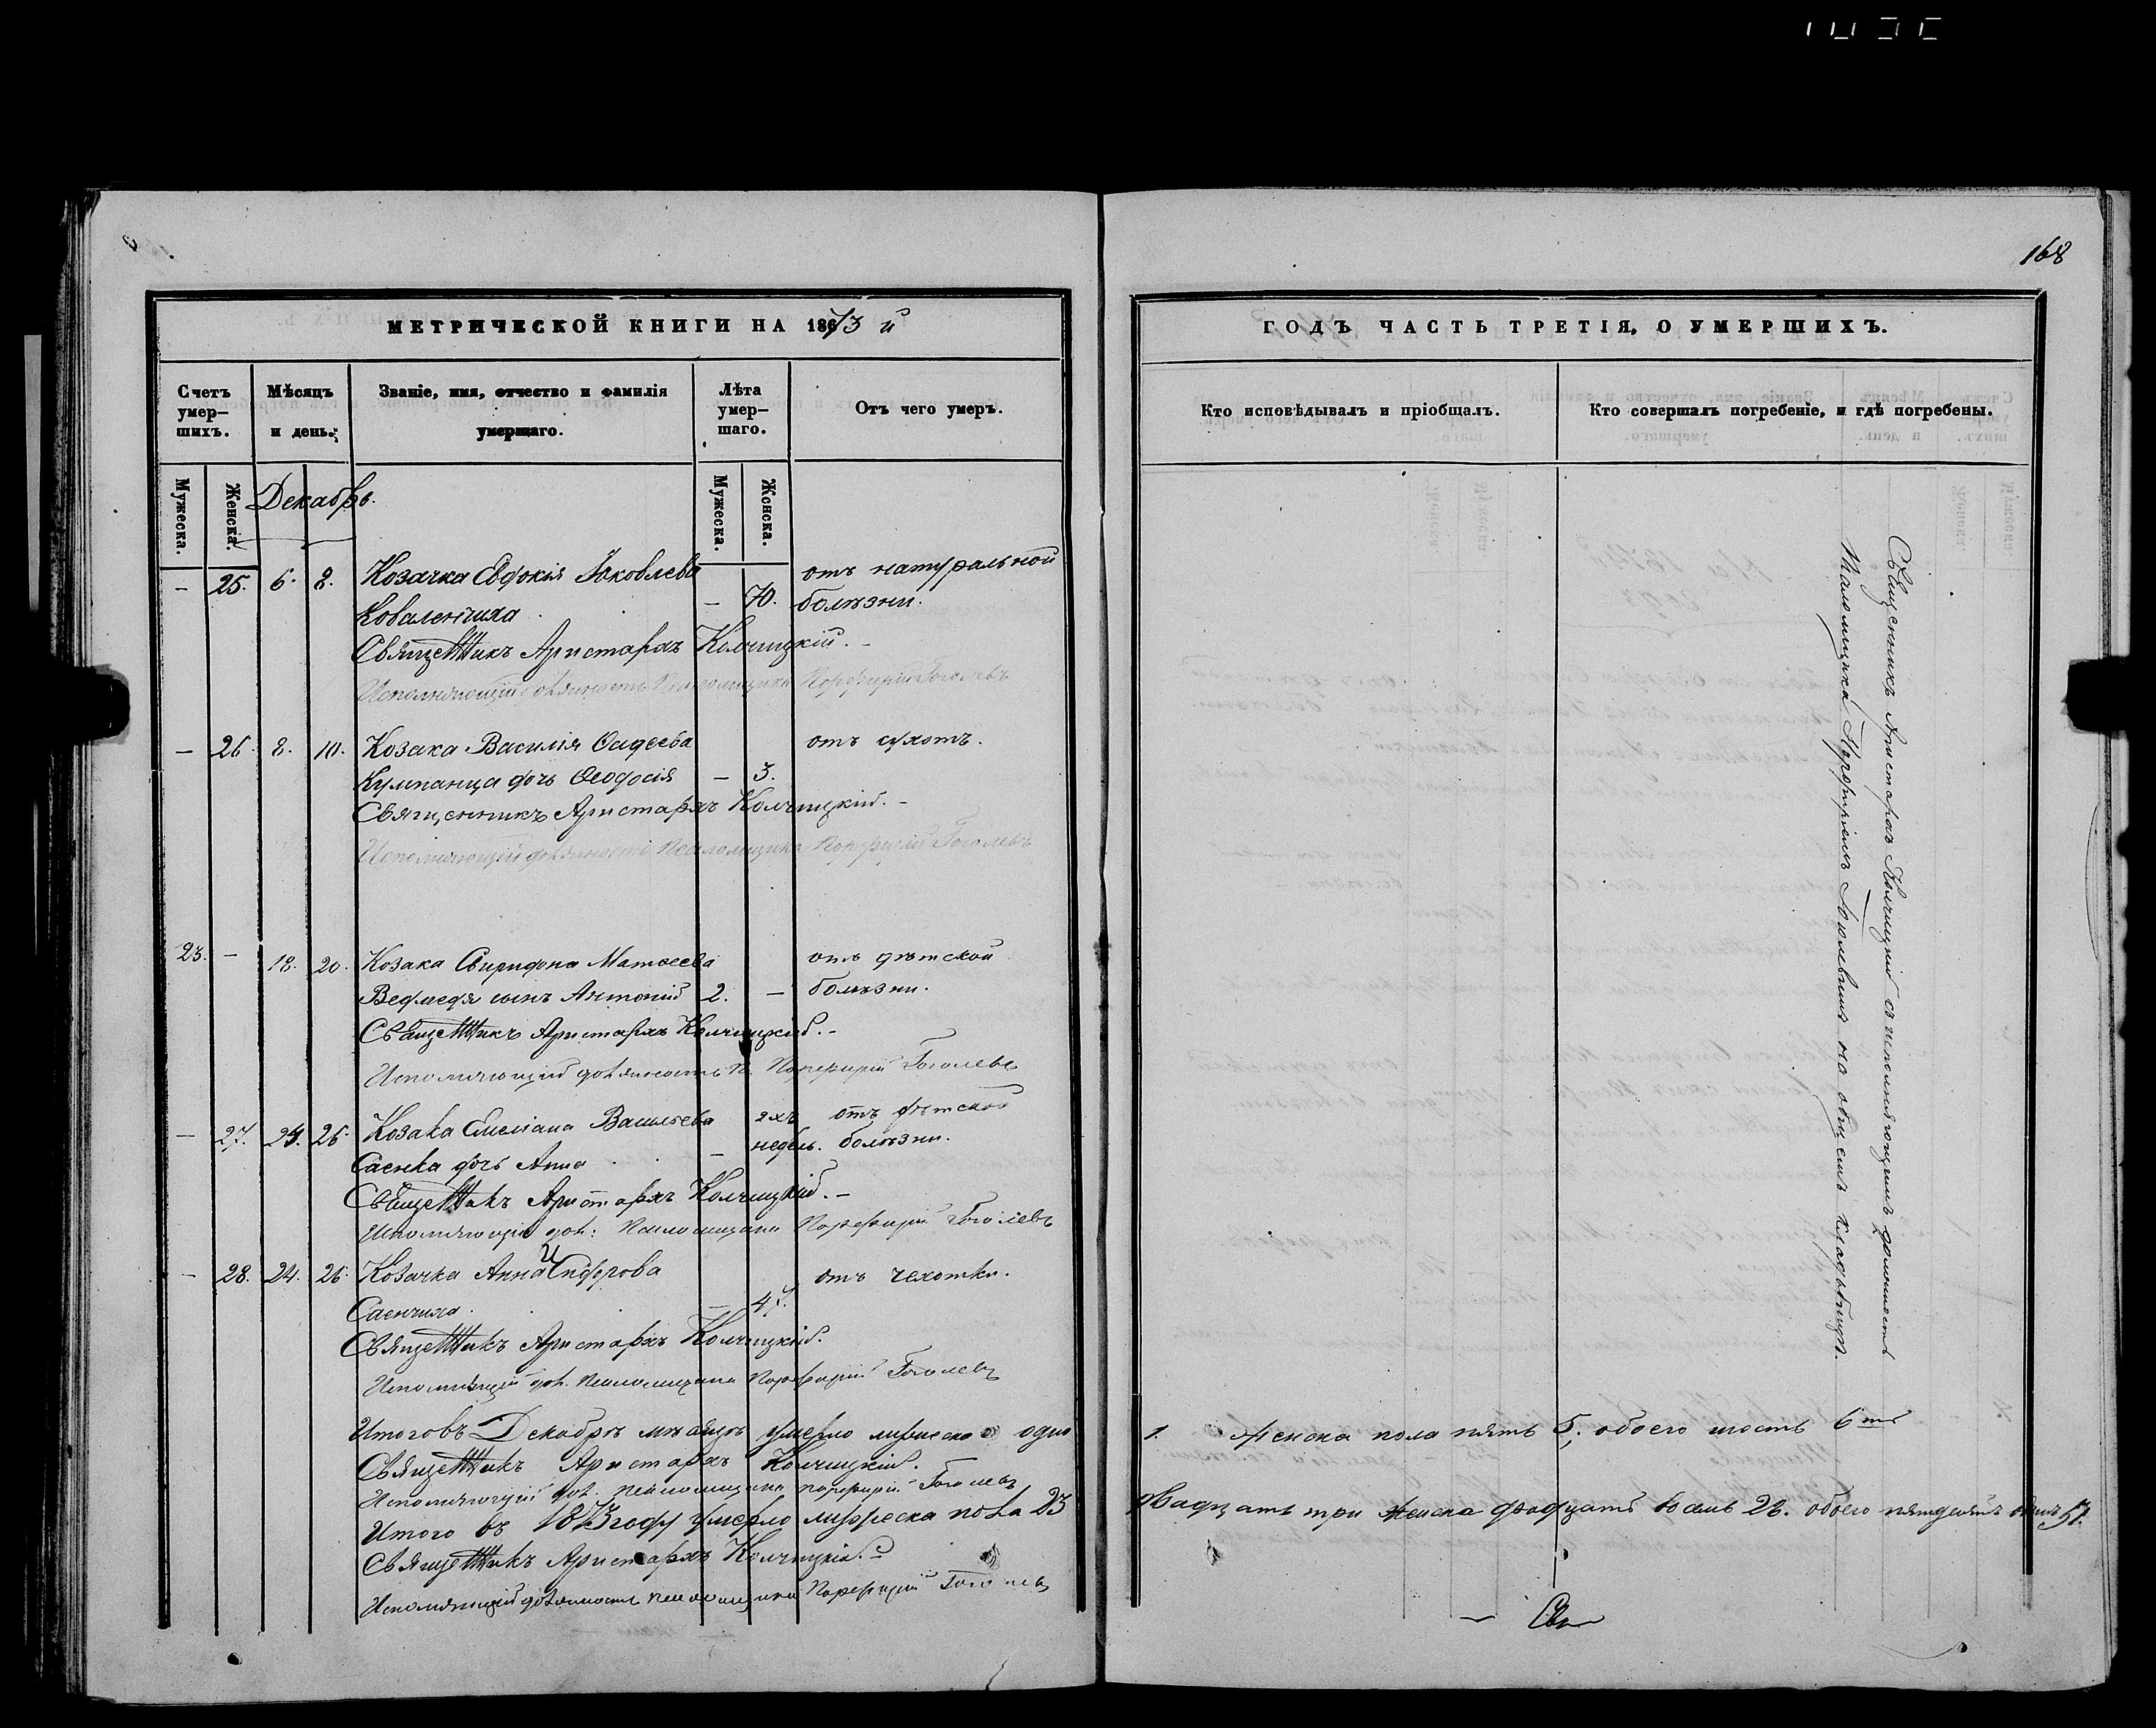 168
МЕТРИЧЕСКОЙ КНИГИ НА 1873 й
ГОДЪ ЧАСТЬ ТРЕТІЯ, О УМЕРШИХЪ.
Счетъ умер-шихъ.
Мѣсяцъ и день.
Званіе, имя, отчество и фамилія умершаго.
Лѣта умер-шаго.
Отъ чего умеръ.
Кто исповѣдывалъ и пріобщалъ.
Кто совершалъ погребеніе, и гдѣ погребены.
Мужеска.
Женска.
Мужеска.
Женска.
Декабрь.
– 25. 6. 8. Козачка Евдокія Яковлева отъ натуральной
Коваленчиха – 70. болѣзни.
Священникъ Аристархъ Колчицкій.
Исполняющій должность Псаломщика Порфирій Гоголевъ
– 26. 8. 10. Козака Василія Фадеева отъ сухотъ.
Кумпанца дочь Феодосія – 3.
Священникъ Аристархъ Колчицкій.
Исполняющій должность Псаломщика Порфирій Гоголевъ
23. – 18. 20. Козака Спиридона Матвеева отъ дѣтской
Ведмедя сынъ Антоній 2. – болѣзни.
Священникъ Аристархъ Колчицкій.
Исполняющій должность П. Порфирій Гоголевъ
– 27. 24. 26. Козака Емеліана Васильева 2хъ отъ дѣтской
Саенка дочь Анна – недѣль. болѣзни.
Священникъ Аристархъ Колчицкій.
Исполняющій дол: Псаломщика Порфирій Гоголевъ
– 28. 24. 26. Козачка Анна Сидорова отъ чахотки.
Саенчиха –
Священникъ Аристархъ Колчицкій.
Исполняющій дол. Псаломщика Порфирій Гоголевъ
Итого въ Декабрѣ мѣсяцѣ умерло мужеска одно 1. женска пола пять 5, обоего шесть 6ть
Священникъ Аристархъ Колчицкій.
Исполняющій дол. Псаломщика Порфирій Гоголевъ
Итого въ 1873 году умерло мужеска пола 23 двадцать три женска двадцать восемь 28. обоего пятдесятъ одинъ 51.
Священникъ Аристархъ Колчицкій.
Исполняющій должность Псаломщика Порфирій Гоголевъ
Священникъ Аристархъ Колчицкій съ исполняющимъ должность
Псаломщика Порфиріемъ Гоголевымъ на общемъ кладбищѣ.